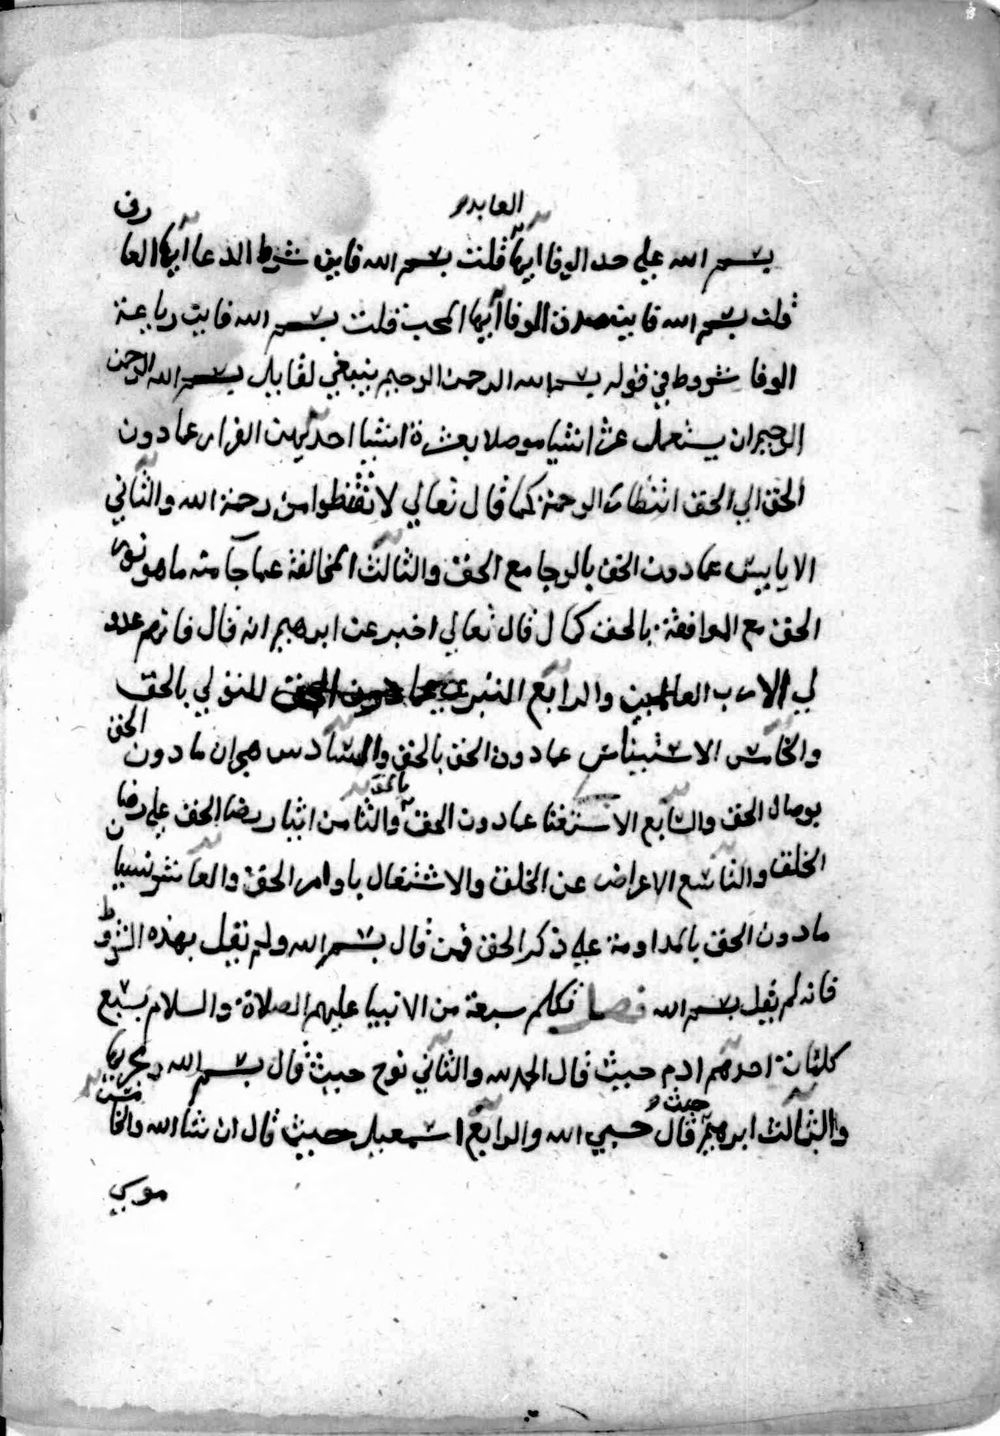 العابد رف
بسم الله علي حد الوفا ايها قلت بسم الله فاين شرط الدعا ايها العا
قلت بسم الله فاين صدق الوفا ايها المحب قلت بسم الله فاين رياعة
الوفا شروط في قوله بسم الله الرحمن الرحيم ينبغي لقايل بسم الله الرحمن
الرحيم ان يستعمل عشر اشيا موصلا بعشرة اشيا احديهن الفرار عمادون
الحق الي الحق انتظارة الرحمة كما قال تعالي لا تقنطوا من رحمة الله والثاني
الاياييس عمادون الحق بالرجا مع الحق والثالث المخالفة عما جآ منه ما هو دون
الحق مع الموافقة بالحق كما ل قال تعالي اخبر عن ابرهيم انه قال فانهم عدو
لي الا رب العالمين والرابع التبري للتولي بالحق
والخامس الاستيناس عمادون الحق بالحق والسادس هجران مادون الحق
بوصال الحق والسابع الاستغنا عمادون الحق بالحق والثامن ايثار رضا الحق علي رضا
الخلق والتاسع الاعراض عن الخلق والاشتغال باوامر الحق والعاشر نسيان
مادون الحق بالمداومة علي ذكر الحق فمن قال بسم الله ولم يقل بهذه الشرط
فانه لم يقل بسم الله فصل تكلم سبعة من الانبيا عليهم الصلاة والسلام بسبع
كلمات احدهم ادم حيث قال الحمد لله والثاني نوح حيث قال بسم الله مجريها
والثالث ابرهيم حيث قال حسبي الله والرابع اسمعيل حيث قال ان شا الله والخامس
موسي